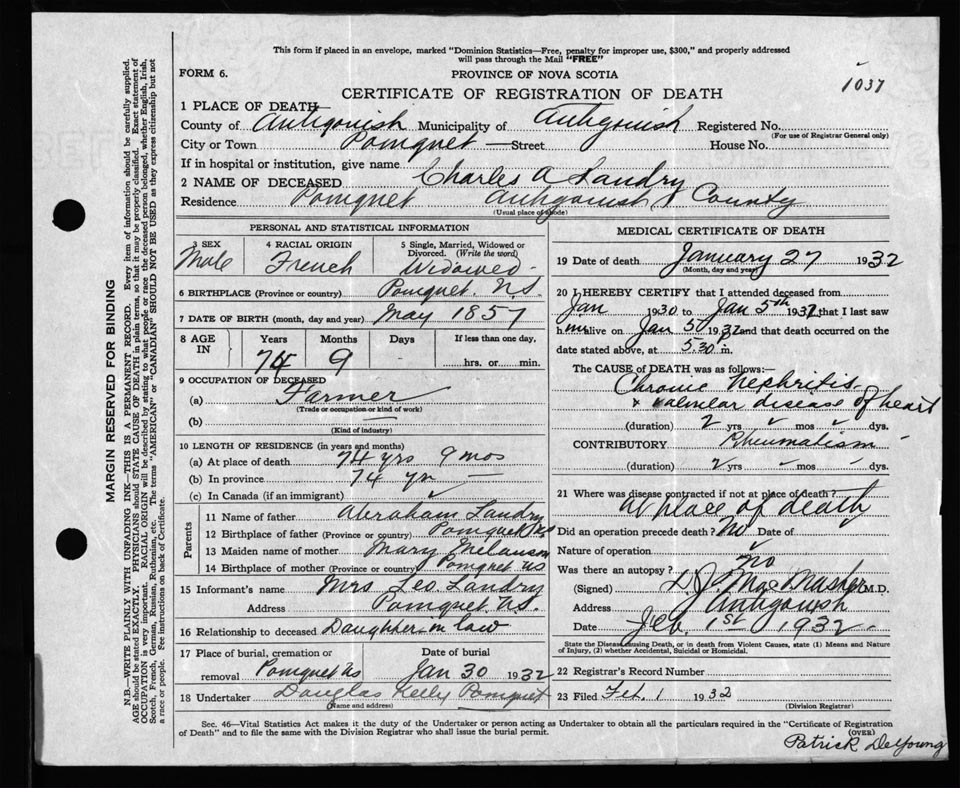 This form if placed in an envelope, marked "Dominion Statistics—Free, penalty for improper use, $300," and properly addressed
will pass through the Mail "FREE"
FORM 6. PROVINCE OF NOVA SCOTIA
1037
CERTIFICATE OF REGISTRATION OF DEATH
1 PLACE OF DEATH—
County of Antigonish Municipality of Antigonish Registered No.
(For use of Registrar General only)
City or Town Pomquet —Street House No.
If in hospital or institution, give name
2 NAME OF DECEASED Charles A Landry
Residence Pomquet Antigonish County
(Usual place of abode)
PERSONAL AND STATISTICAL INFORMATION
3 SEX Male
4 RACIAL ORIGIN French
5 Single, Married, Widowed or
Divorced. (Write the word)
Widowed
6 BIRTHPLACE (Province or country) Pomquet. N.S.
7 DATE OF BIRTH (month, day and year) May 1857
8 AGE IN Years 74 Months 9 Days - If less than one day, hrs. or min.
9 OCCUPATION OF DECEASED
(a) Farmer
(Trade or occupation or kind of work)
(b)
(Kind of industry)
10 LENGTH OF RESIDENCE (in years and months)
(a) At place of death 74 yrs 9 mos
(b) In province 74 yr —
(c) In Canada (if an immigrant) ✓
Parents
11 Name of father Abraham Landry
12 Birthplace of father (Province or country) Pomquet NS
13 Maiden name of mother Mary Melanson
14 Birthplace of mother (Province or country) Pomquet NS
15 Informant's name Mrs Leo. Landry
Address Pomquet N.S.
16 Relationship to deceased Daughter in law
17 Place of burial, cremation or Date of burial
removal Pomquet NS Jan 30 1932
18 Undertaker Douglas Kelly Pomquet
(Name and address)
MEDICAL CERTIFICATE OF DEATH
19 Date of death January 27 1932
(Month, day and year)
20 I HEREBY CERTIFY that I attended deceased from
Jan 1930 to Jan 5th 1932 that I last saw
him alive on Jan 5 1932 and that death occurred on the
date stated above, at 5.30 p m.
The CAUSE OF DEATH was as follows:
Chronic Nephritis
& valvular disease of heart
(duration) 2 yrs ✓ mos ✓ dys.
CONTRIBUTORY Rheumatism
(duration) 2 yrs ✓ mos ✓ dys.
21 Where was disease contracted if not at place of death?
At place of death
Did an operation precede death? No Date of
Nature of operation ✓
Was there an autopsy? No
(Signed) M.D.
Address Antigonish
Date Feb. 1st 1932
State the Disease causing Death, or in death from Violent Causes, state (1) Means and Nature
of Injury, (2) whether Accidental, Suicidal or Homicidal.
22 Registrar's Record Number
23 Filed Feb. 1 1932
(Division Registrar)
Sec. 46—Vital Statistics Act makes it the duty of the Undertaker or person acting as Undertaker to obtain all the particulars required in the "Certificate of Registration
of Death" and to file the same with the Division Registrar who shall issue the burial permit.
(OVER)
Patrick DeYoung
MARGIN RESERVED FOR BINDING
N.B.—WRITE PLAINLY WITH UNFADING INK—THIS IS A PERMANENT RECORD. Every item of information should be carefully supplied.
AGE should be stated EXACTLY. PHYSICIANS should STATE CAUSE OF DEATH in plain terms, so that it may be properly classified. Exact statement of
OCCUPATION is very important. RACIAL ORIGIN will be described by stating to what people or race the deceased person belonged, whether English, Irish,
Scotch, French, German, Russian, Ruthenian, etc. The terms "AMERICAN" or "CANADIAN" SHOULD NOT BE USED as they express citizenship but not
a race or people. See instructions on back of Certificate.